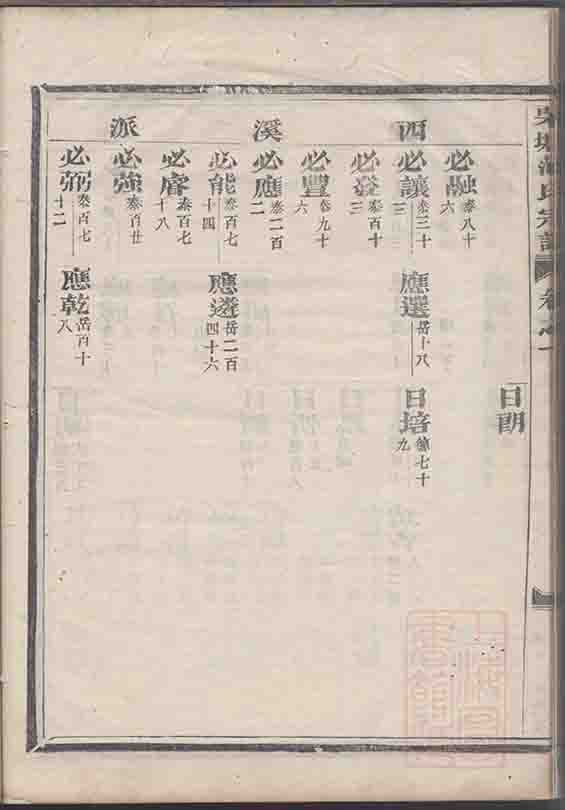 宗譜
卷之一
日爵
西溪派
必融 泰八十六
必讓 泰三十三
應選 岳十八
日培 
必登 泰百十三
必豐 泰九十六
必應 泰二百二
必能 泰百七十四
應遴 岳二百四十六
必睿 泰百七十八
必強 泰百廿
必弼 泰百七十二
應乾 岳百十八